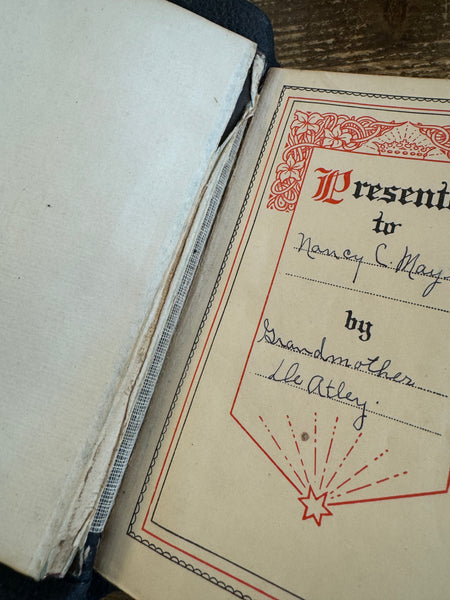 Presente
to
Nancy C. May
by
Grandmother
De Atley.